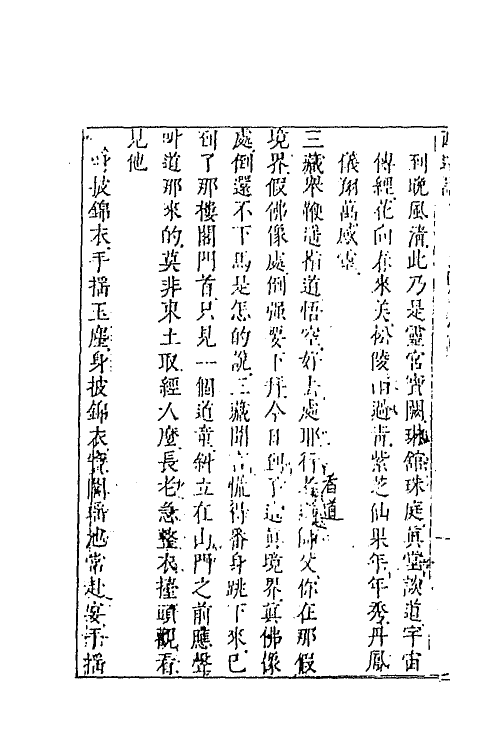 到晚風清此乃是靈宮寶闕琳館珠庭真堂談道宇宙
傳經花向春來美松臨雨過青紫芝仙果年年秀丹鳳
儀翔萬感靈
三藏舉鞭遙指道悟空好去處耶行者道師父你在那假
境界假佛像處倒强要下拜今日到了這真境界真佛像
處倒還不下馬是怎的說三藏聞言慌得番身跳下來已
到了那樓閣門首只見一個道童斜立在山門之前應聲
叫道那來的莫非東土取經人麼長老急整衣擡頭觀看
見他
身披錦衣手搖玉麈身披錦衣寶閣瑤池常赴宴手搖